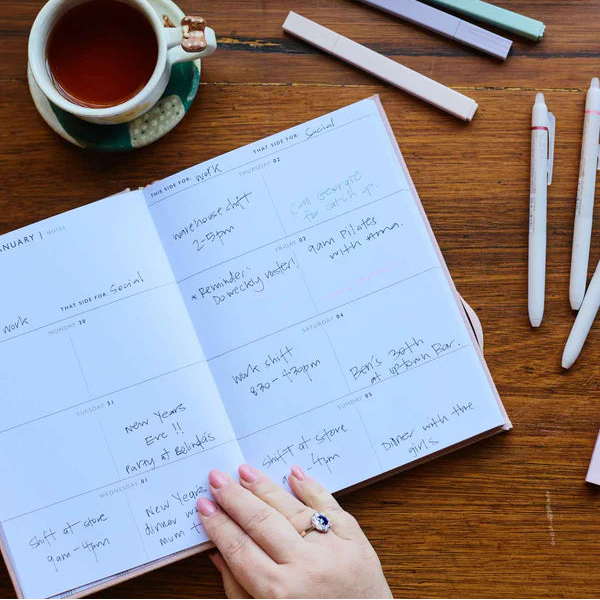 JANUARY | NOTES
work
THAT SIDE FOR: Social
MONDAY 30
TUESDAY 31
New Years
Eve !!
Party at Belinda's
WEDNESDAY 01
Shift at store
9am-4pm
New Years
dinner
mum
THIS SIDE FOR: work
THAT SIDE FOR: Social
THURSDAY 02
warehouse shift
2-5pm
Call Georgie
for catch up.
FRIDAY 03
* Reminder:
Do weekly roster!
9am Pilates
with Anna.
SATURDAY 04
work shift
830-430pm
Ben's 30th
at Uptown Bar.
SUNDAY 05
Shift at store
-4pm
Dinner with the
girls